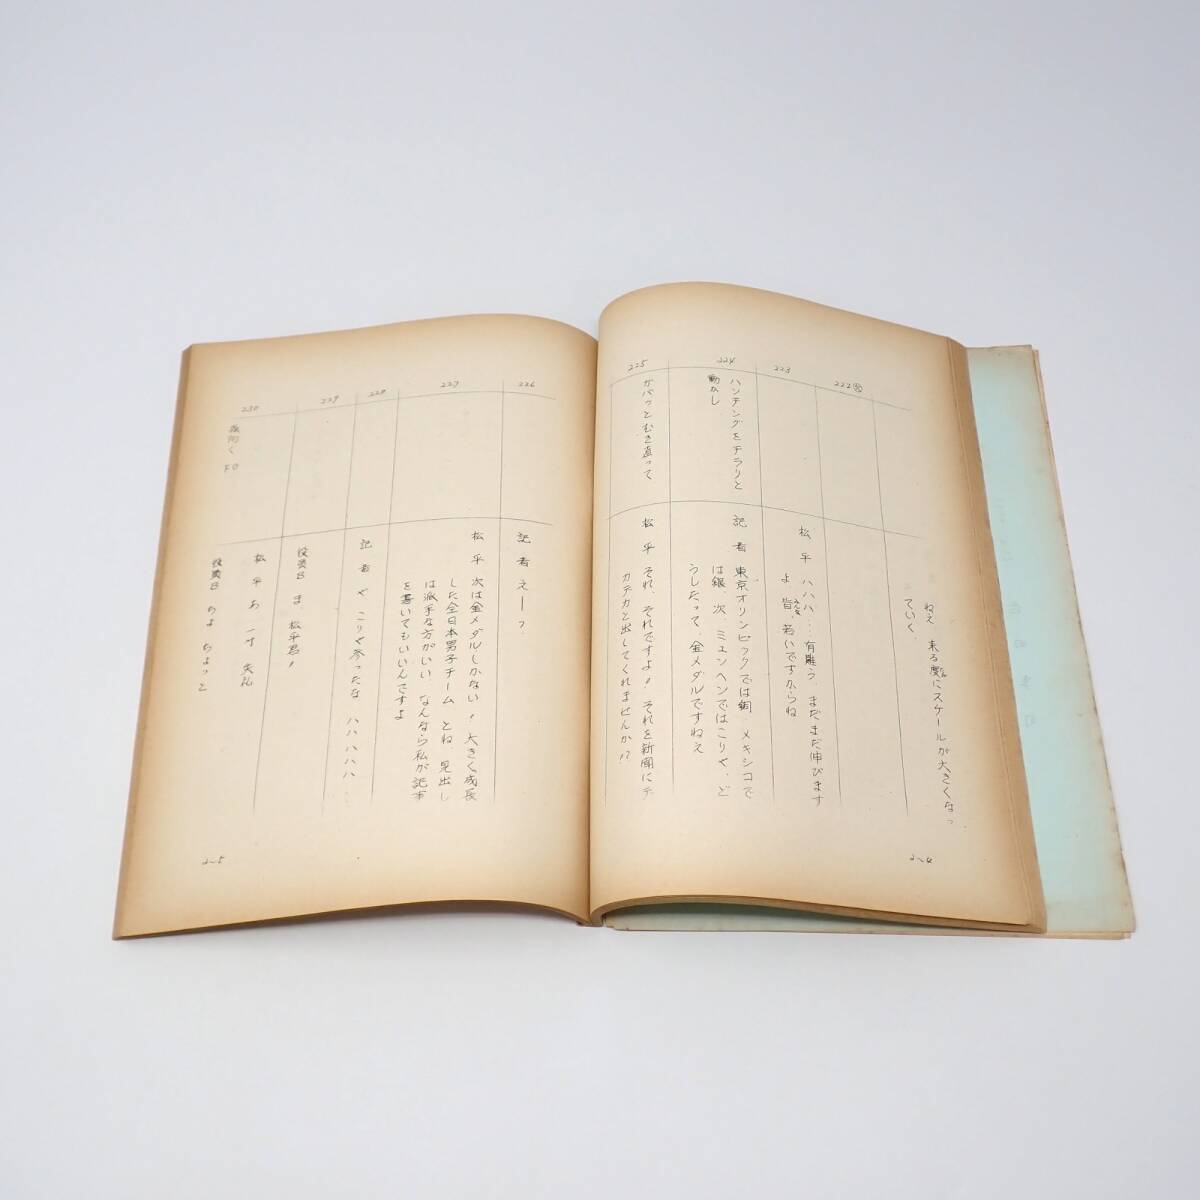 ねえ 来る度にスケールが大きくなっ
ていく、
222
223
松平 ハハハ……有難う まだまだ伸びます
みんな
よ 皆、若いですからね
224
ハンチングをチラリと
動かし
記者 東京オリンピックでは銅、メキシコで
は銀、次、ミュンヘンではこりゃ、ど
うしだって、金メダルですねえ
225
ガバッとむき直って
松平 それ、それですよ! それを新聞にデ
カデカと出してくれませんか!?
2~4
226
記者 え――?
227
松平 次は金メダルしかない! 大きく成長
した全日本男子チーム とね、見出し
は派手な方がいい、なんなら私が記事
を書いてもいいんですよ
228
記者 や こりゃ参ったな ハハハハハ
229
役員B ま、松平君!
230
松平 あ 一寸 失礼
役員B ちょ ちょっと
2~5